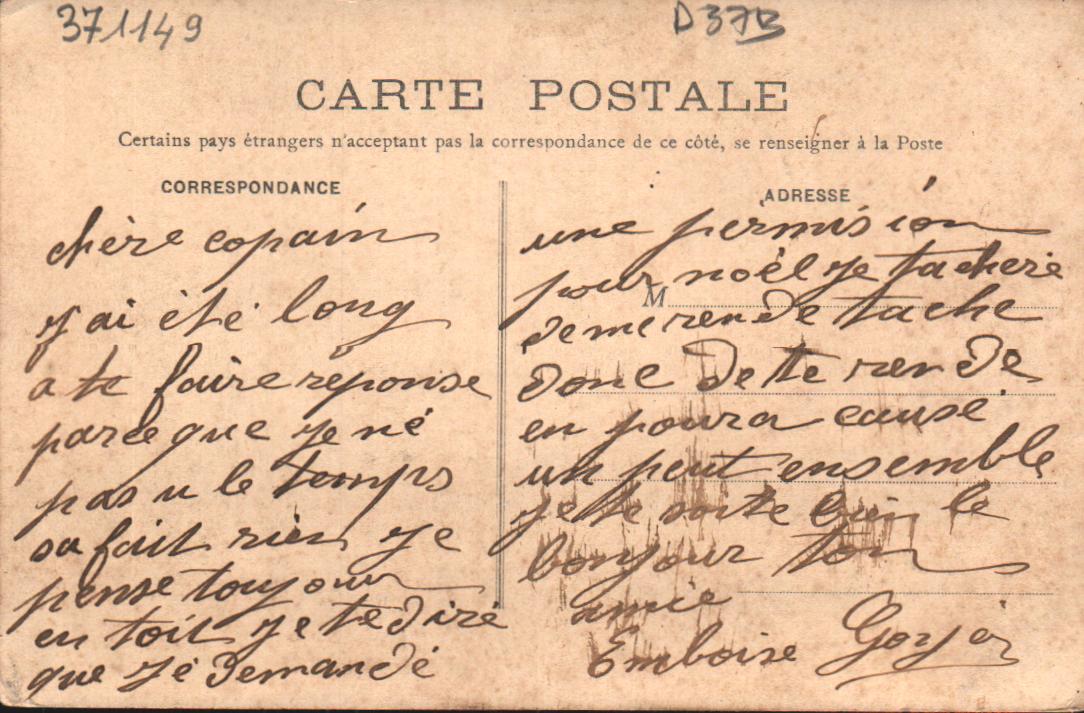 371149
D37B
CARTE POSTALE
Certains pays étrangers n'acceptant pas la correspondance de ce côté, se renseigner à la Poste
CORRESPONDANCE
chère copain
j ai été long
a te faire reponse
parce que je né
pas u le temps
sa fait rien je
pense toujour
en toit je te diré
que jé demandé
ADRESSE
une permision
pour noël je tacheré
M
de me rende tache
donc de te rende
en poura causé
un peut ensemble
je te soite bien le
bonjour ton
amie
Emboise